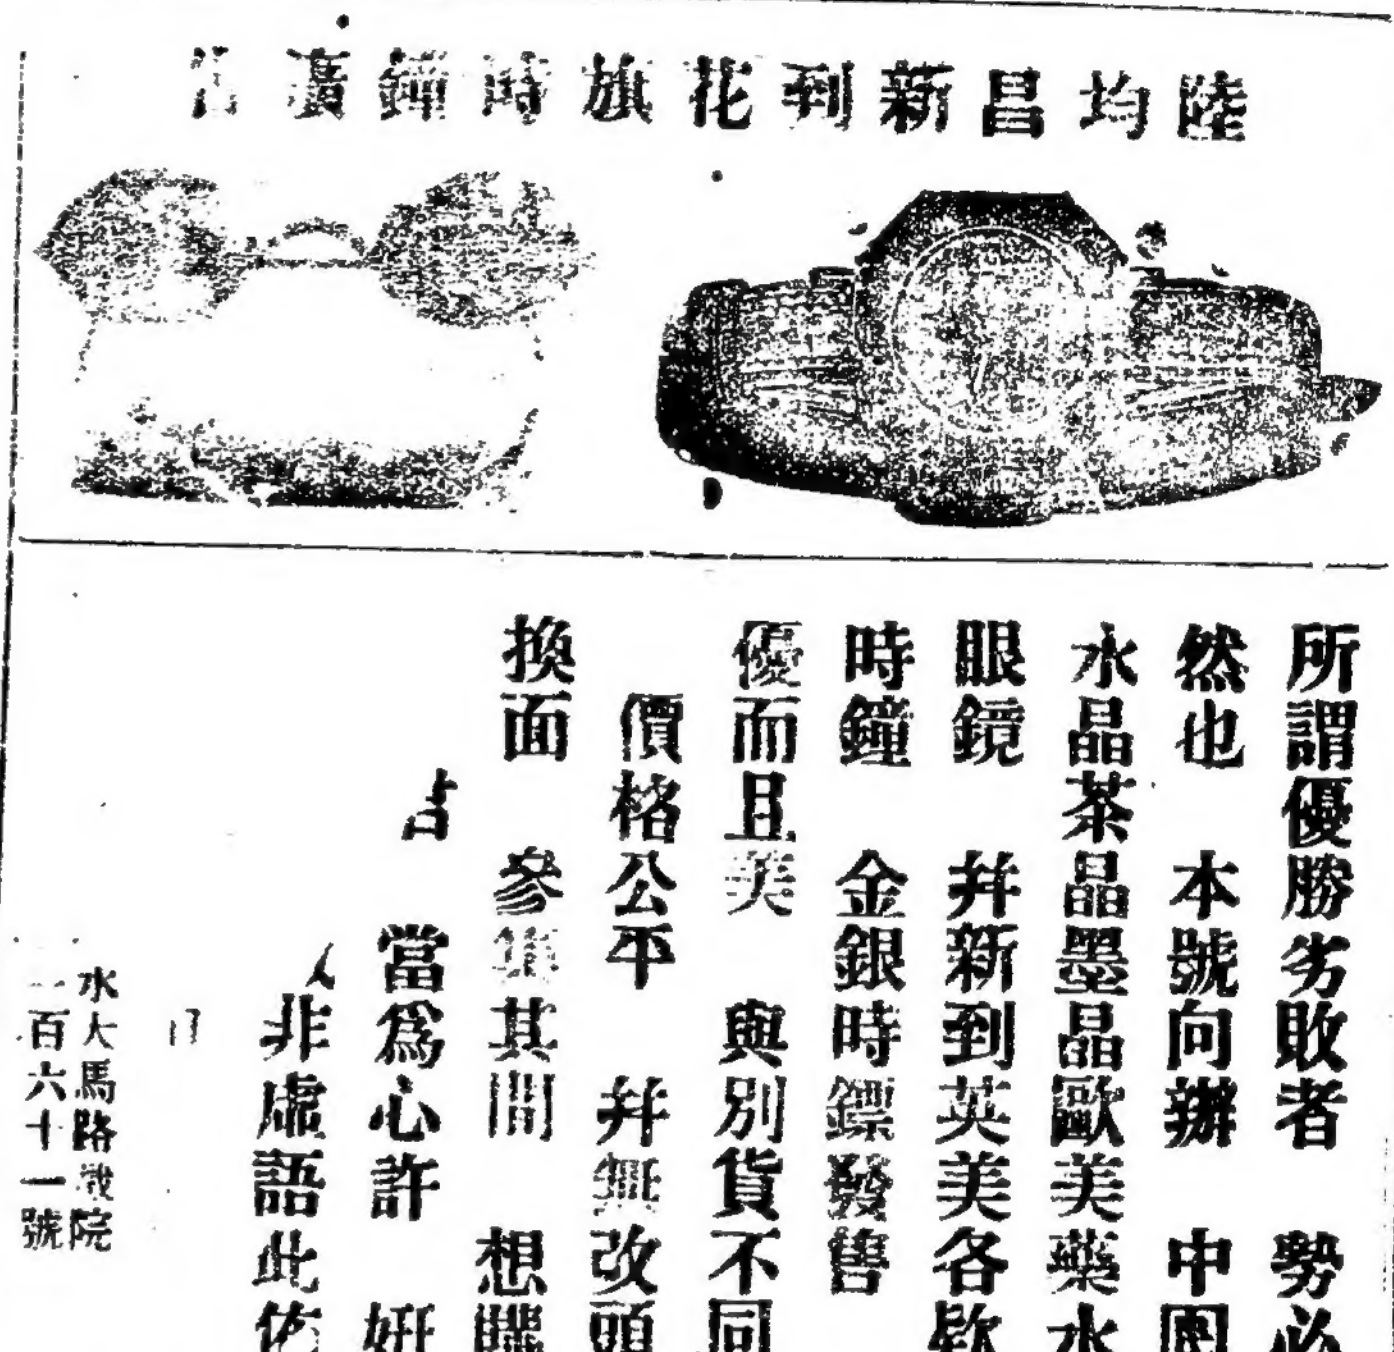 陸均昌新到花旗時鐘廣告
所謂優勝劣敗者 勢必
然也 本號向辦 中國
水晶茶晶墨晶歐美藥水
眼鏡 并新到英美各欵
時鐘 金銀時鏢發售
優而且美 與別貨不同
價格公平 并無改頭
換面 參集其間 想
當為心許
非虛語此佈
水大馬路戲院
一百六十一號